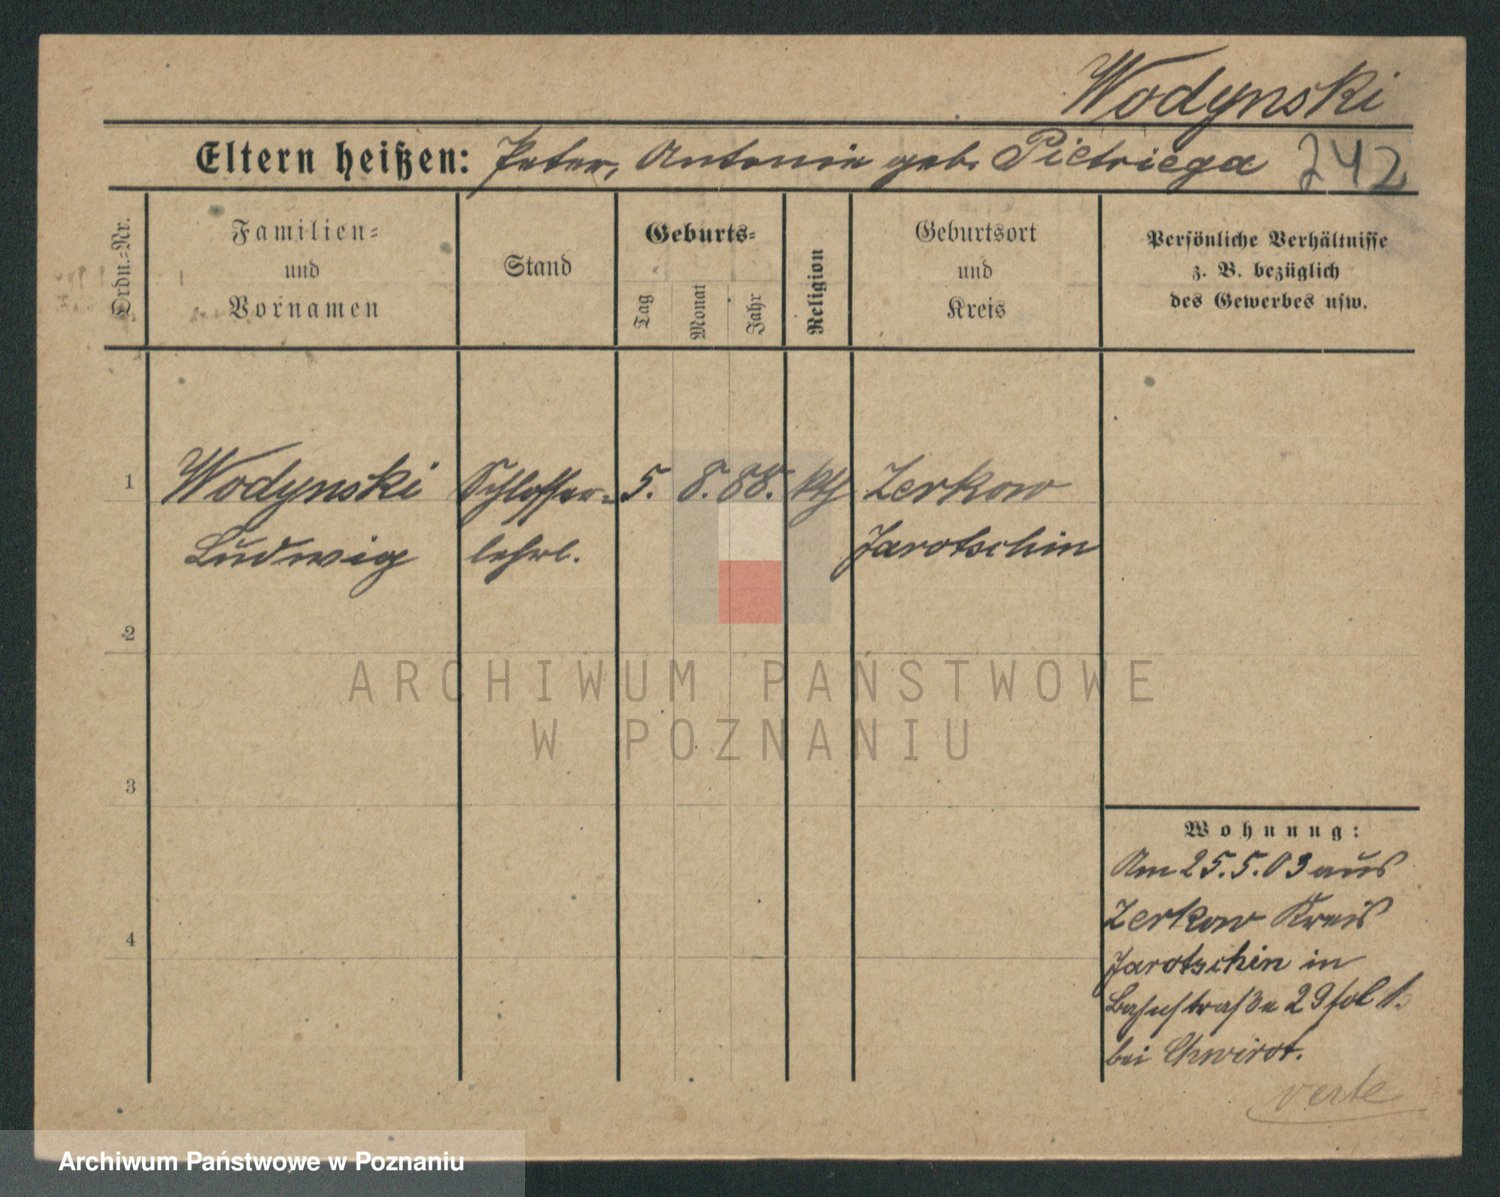 Wodynski
Eltern heißen: Peter, Antonie geb. Pietriega 242
Ordn.=Nr.
Familien=
und
Vornamen
Stand
Geburts=
Tag
Monat
Jahr
Religion
Geburtsort
und
Kreis
Persönliche Verhältnisse
z. B. bezüglich
des Gewerbes usw.
1 Wodynski Schlosser= 5. 8. 88. kth Zerkow
Ludwig lehrl. Jarotschin
2
ARCHIWUM PAŃSTWOWE
W POZNANIU
3
Wohnung:
Am 25.5.03 aus
Zerkow Kreis
4
Jarotschin in
Bahnstraße 29
bei Chwirot.
verte
Archiwum Państwowe w Poznaniu